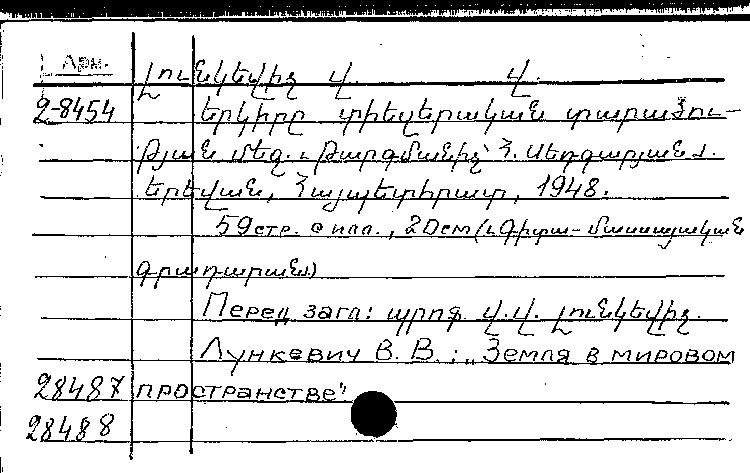 Арм.
Լունկեվիչ Վ. Վ.
2-8454 Երկիրը տիեզերական տարածու-
թյան մեջ. Թարգմանիչ՝ Հ. Սեդգարյան
Երեվան, Հայպետհրատ, 1948.
59 стр. с илл., 20см (Գիտա-մասսայական
գրադարան)
Перед загл: պրոֆ. Վ. Վ. Լունկեվիչ.
Лункевич В. В.: „Земля в мировом
28487 пространстве"
28488